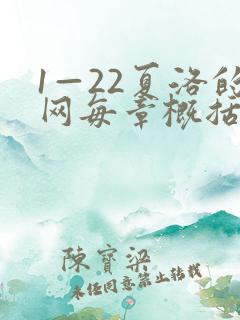 1—22夏洛的
网每章概括
陳寳梁
未经同意禁止转载